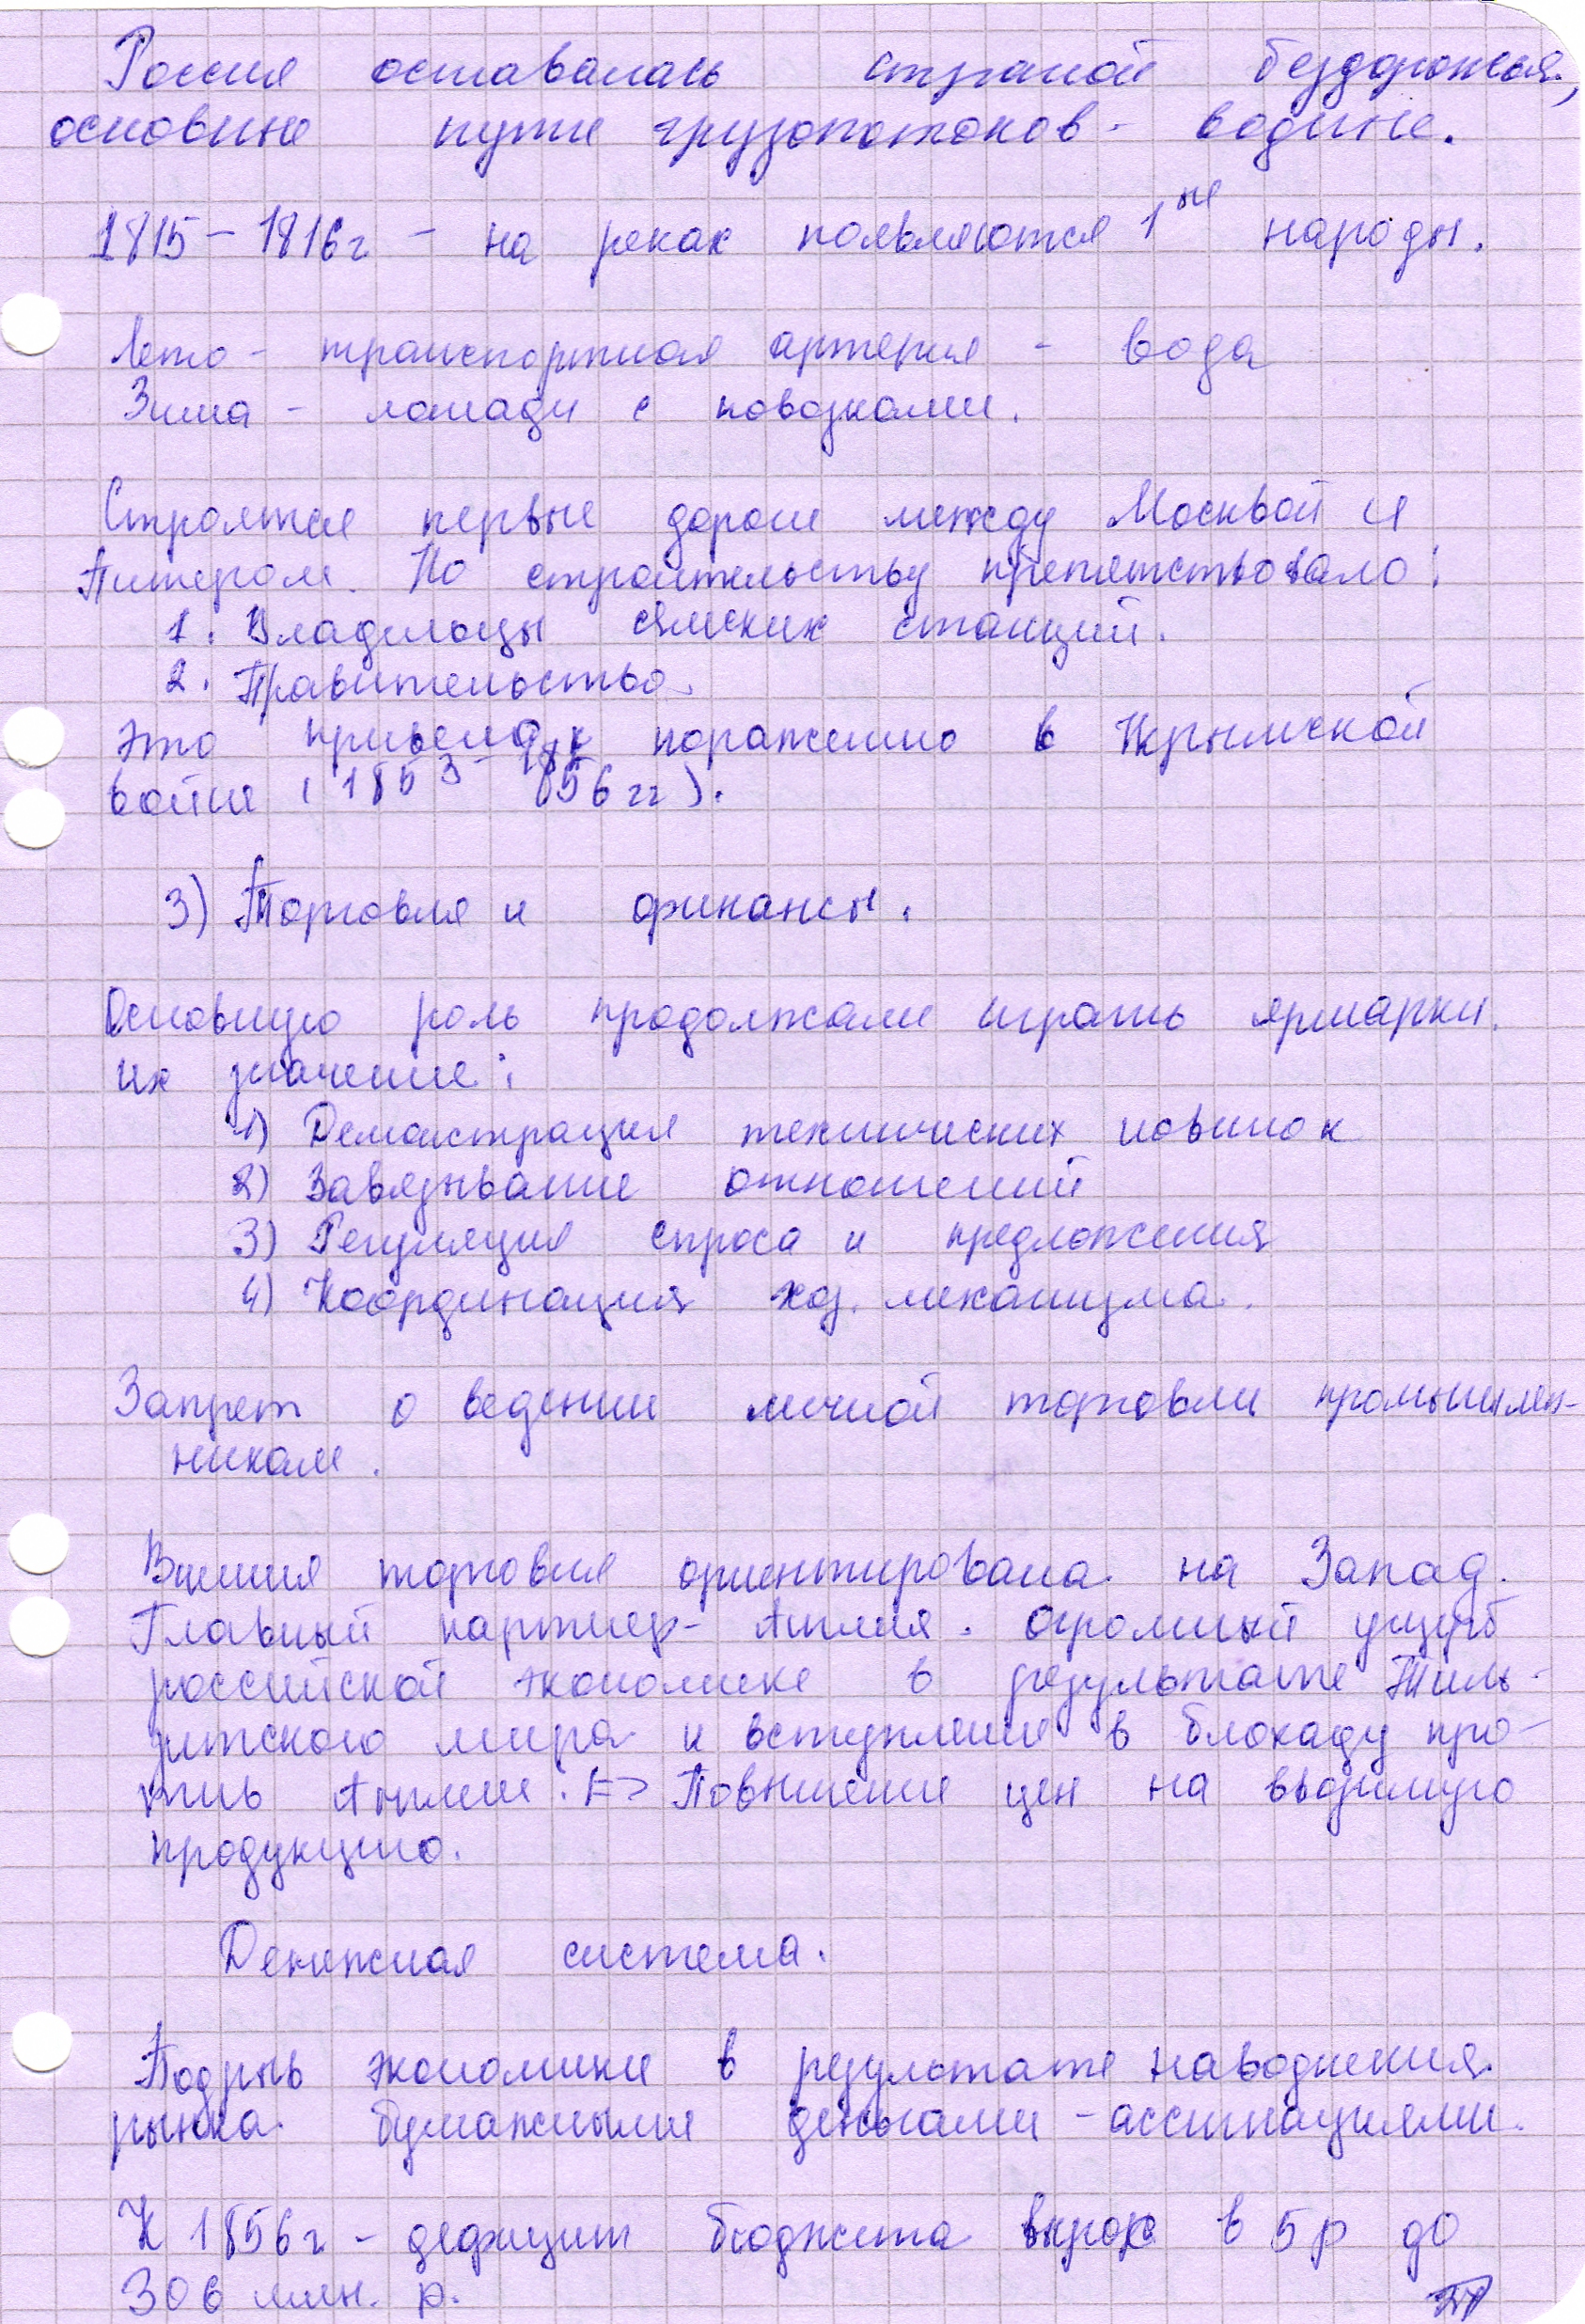 Россия оставалась страной бездорожья,
основные пути грузопотоков - водные.
1815 - 1816г - на реках появляются 1ые пароды.
Лето - транспортная артерия - вода
Зима - лошади с повозками.
Строятся первые дороги между Москвой и
Питером. Но строительству препятствовало:
1. Владельцы ямских станций.
2. Правительство.
Это привело к поражению в Крымской
войне (1853 - 1856 гг).
3) Торговля и финансы.
Основную роль продолжали играть ярмарки.
их значение:
1) Демонстрация технических новинок
2) Завязывание отношений
3) Регуляция спроса и предложения
4) Координация хоз. механизма.
Запрет о ведении личной торговли промышлен-
никам.
Внешняя торговля ориентирована на Запад.
Главный партнер - Англия. Огромный ущерб
российской экономике в результате Тиль-
зитского мира и вступления в блокаду про-
тив Англии. => Повышение цен на вводимую
продукцию.
Денежная система.
Подрыв экономики в результате наводнения
рынка бумажными деньгами - ассигнациями.
К 1856г - дефицит бюджета вырос в 5 р до
306 млн. р.